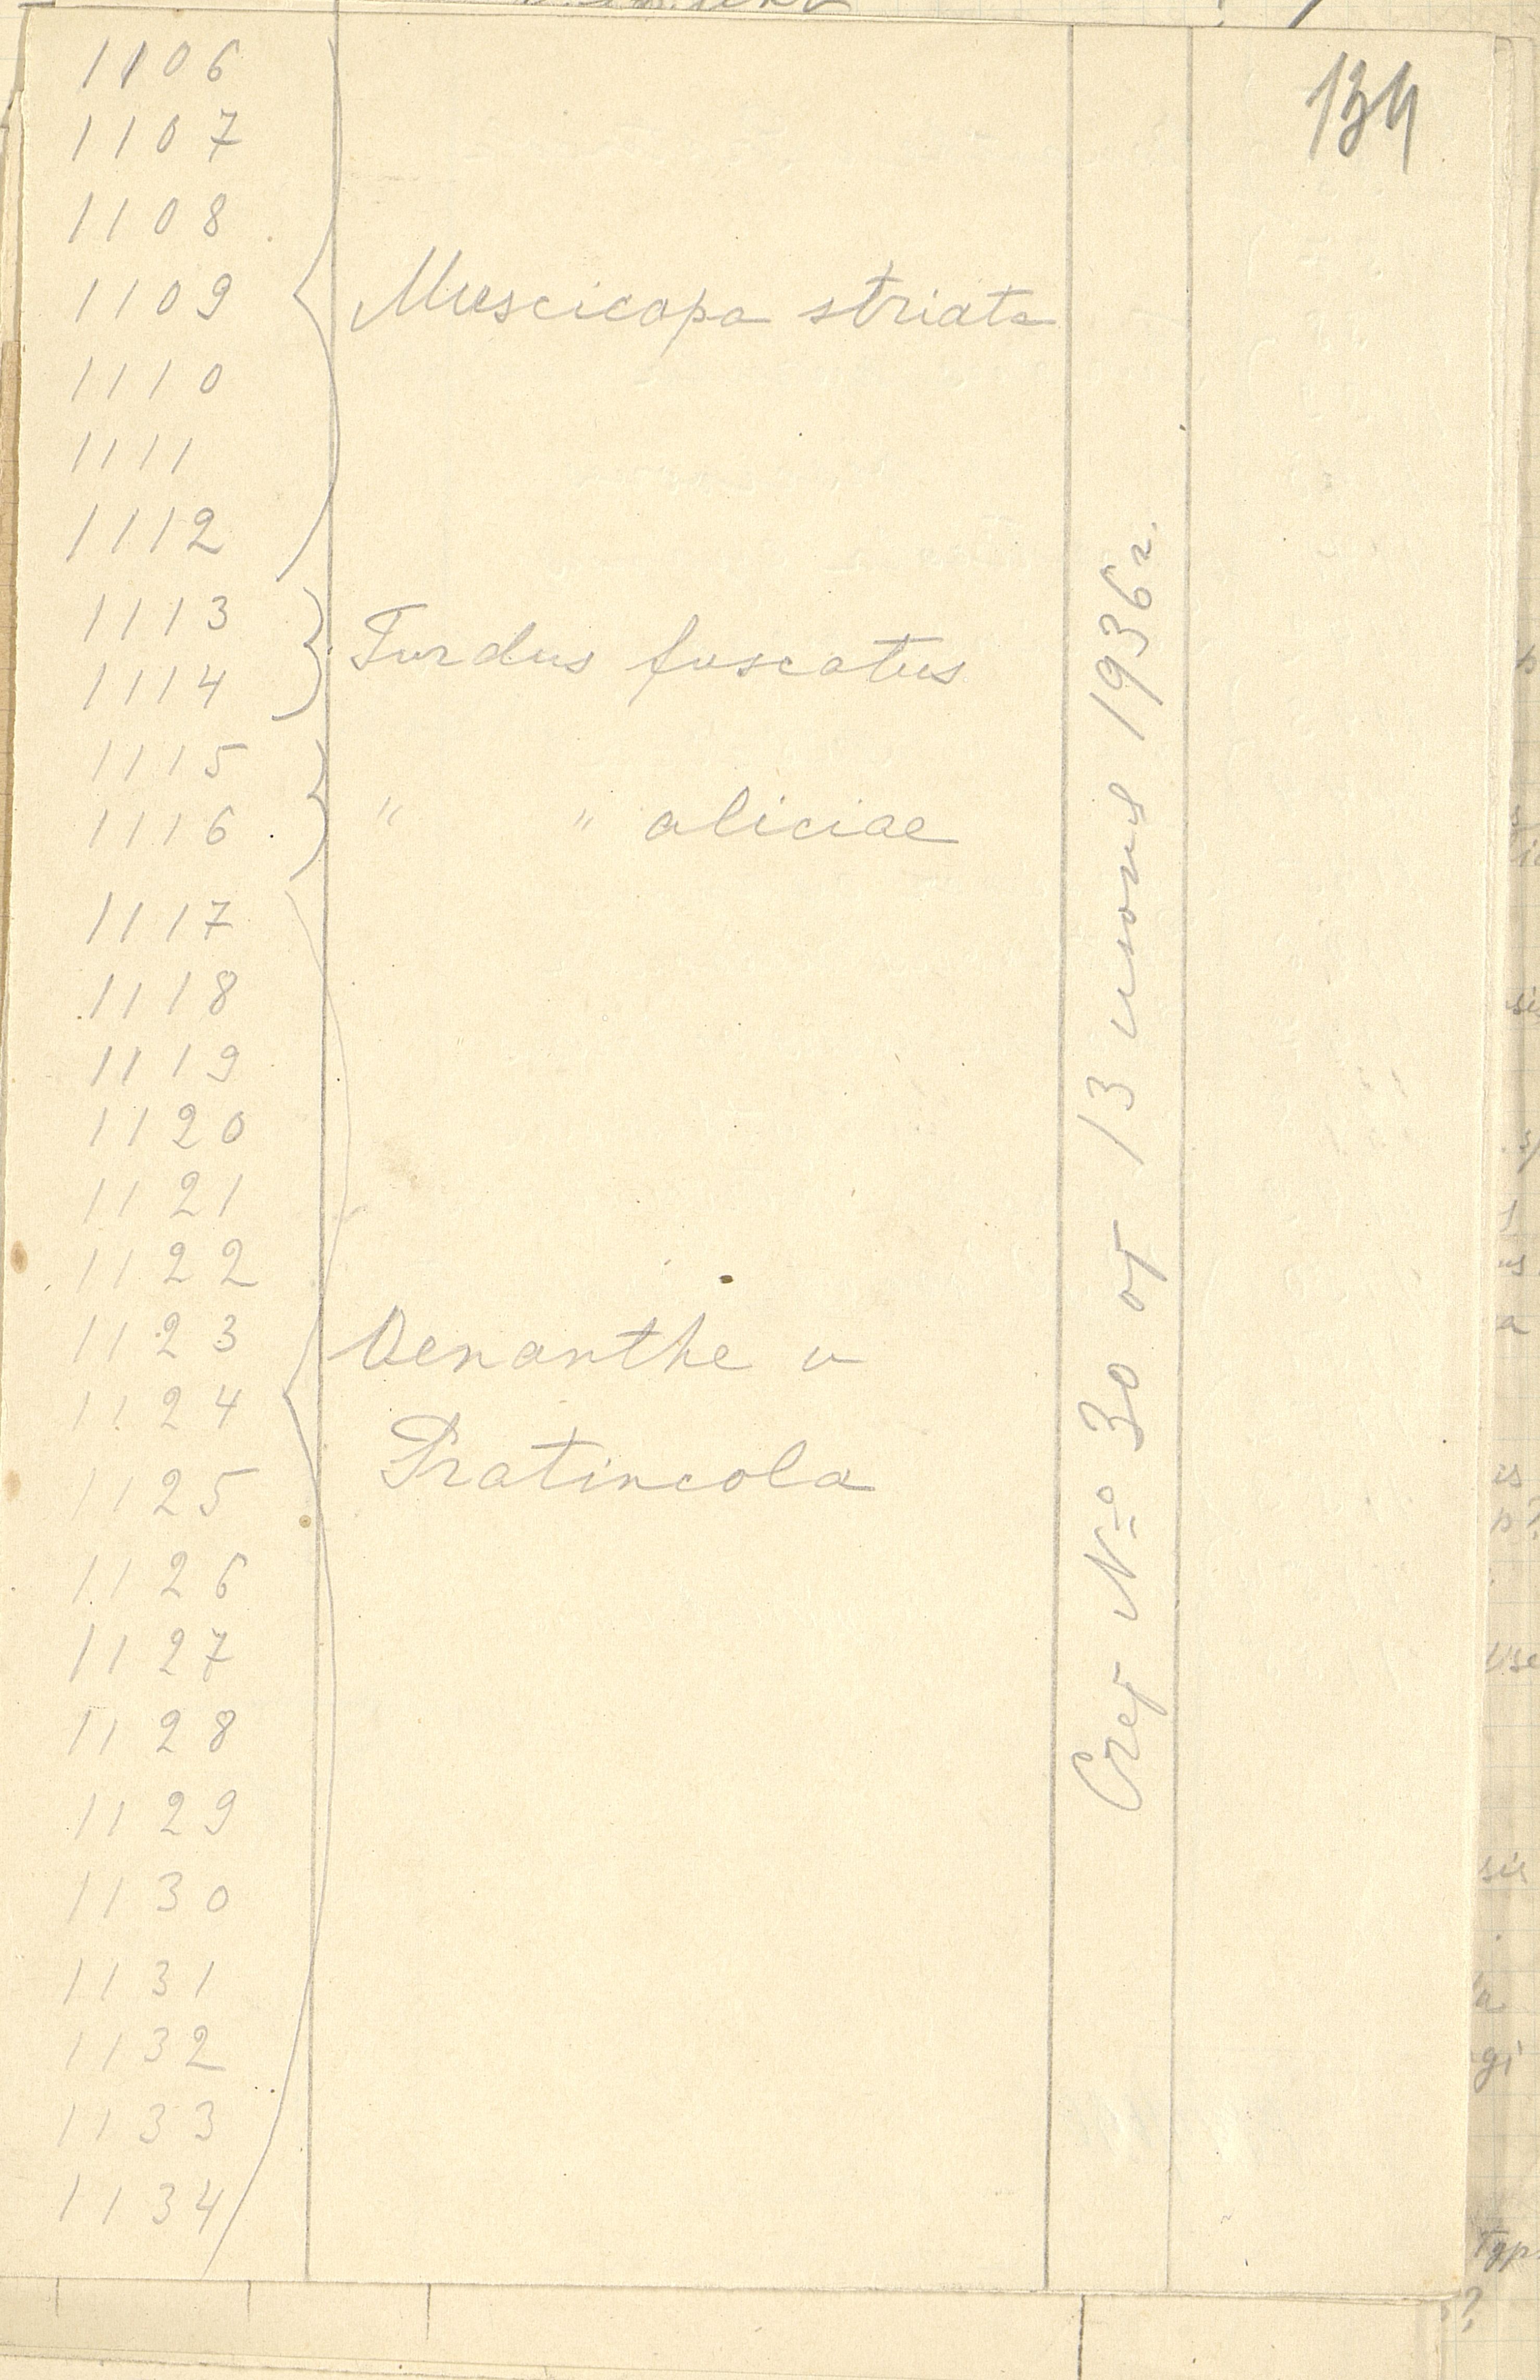 134
1106
1107
1108
1109 Muscicapa striata
1110
1111
1112
1113
Turdus fuscatus
1114
1115
1116 " " aliciae
1117
1118
1119
1120
1121
1122
1123 Oenanthe и
1124
Pratincola
1125
1126
1127
1128
1129
1130
1131
1132
1133
1134
Счет № 30 от 13 июня 1936 г.